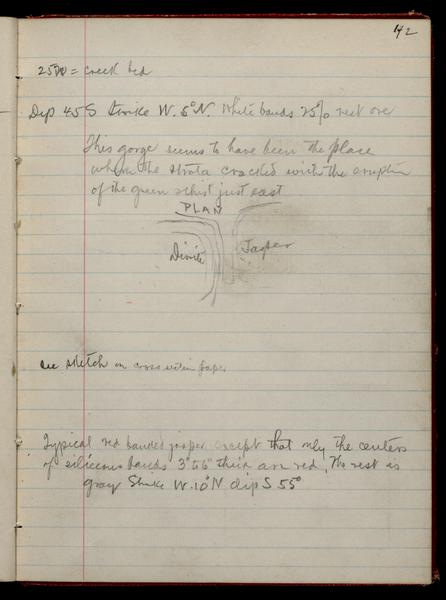 142
= creek bed
Dip 45 S Strike W. 5° N. White bands 25% rest ore
This gorge seems to have been the place
where the strata cracked with the eruption
of the green schist just east
PLAN
Diorite Jasper
see sketch on cross section paper
Typical red banded jasper except that only the centers
of siliceous bands 3" to 6" thick are red, the rest is
gray Strike W. 10° N dip S 55°